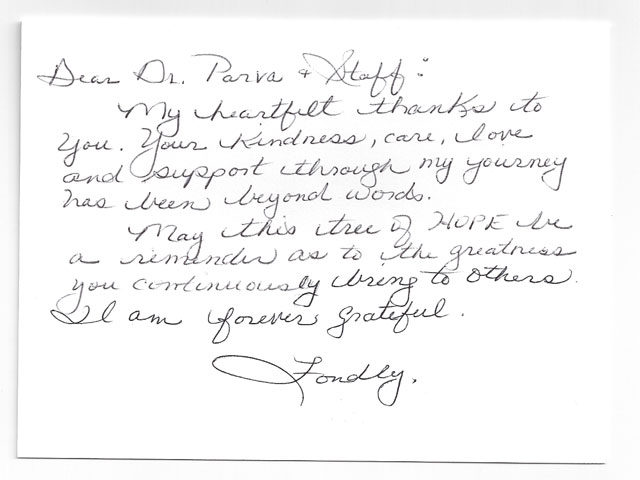 Dear Dr. Parva & Staff:
My heartfelt thanks to
you. Your kindness, care, love
and support through my journey
has been beyond words.
May this tree of HOPE be
a reminder as to the greatness
you continuously bring to others.
I am forever grateful.
Fondly,